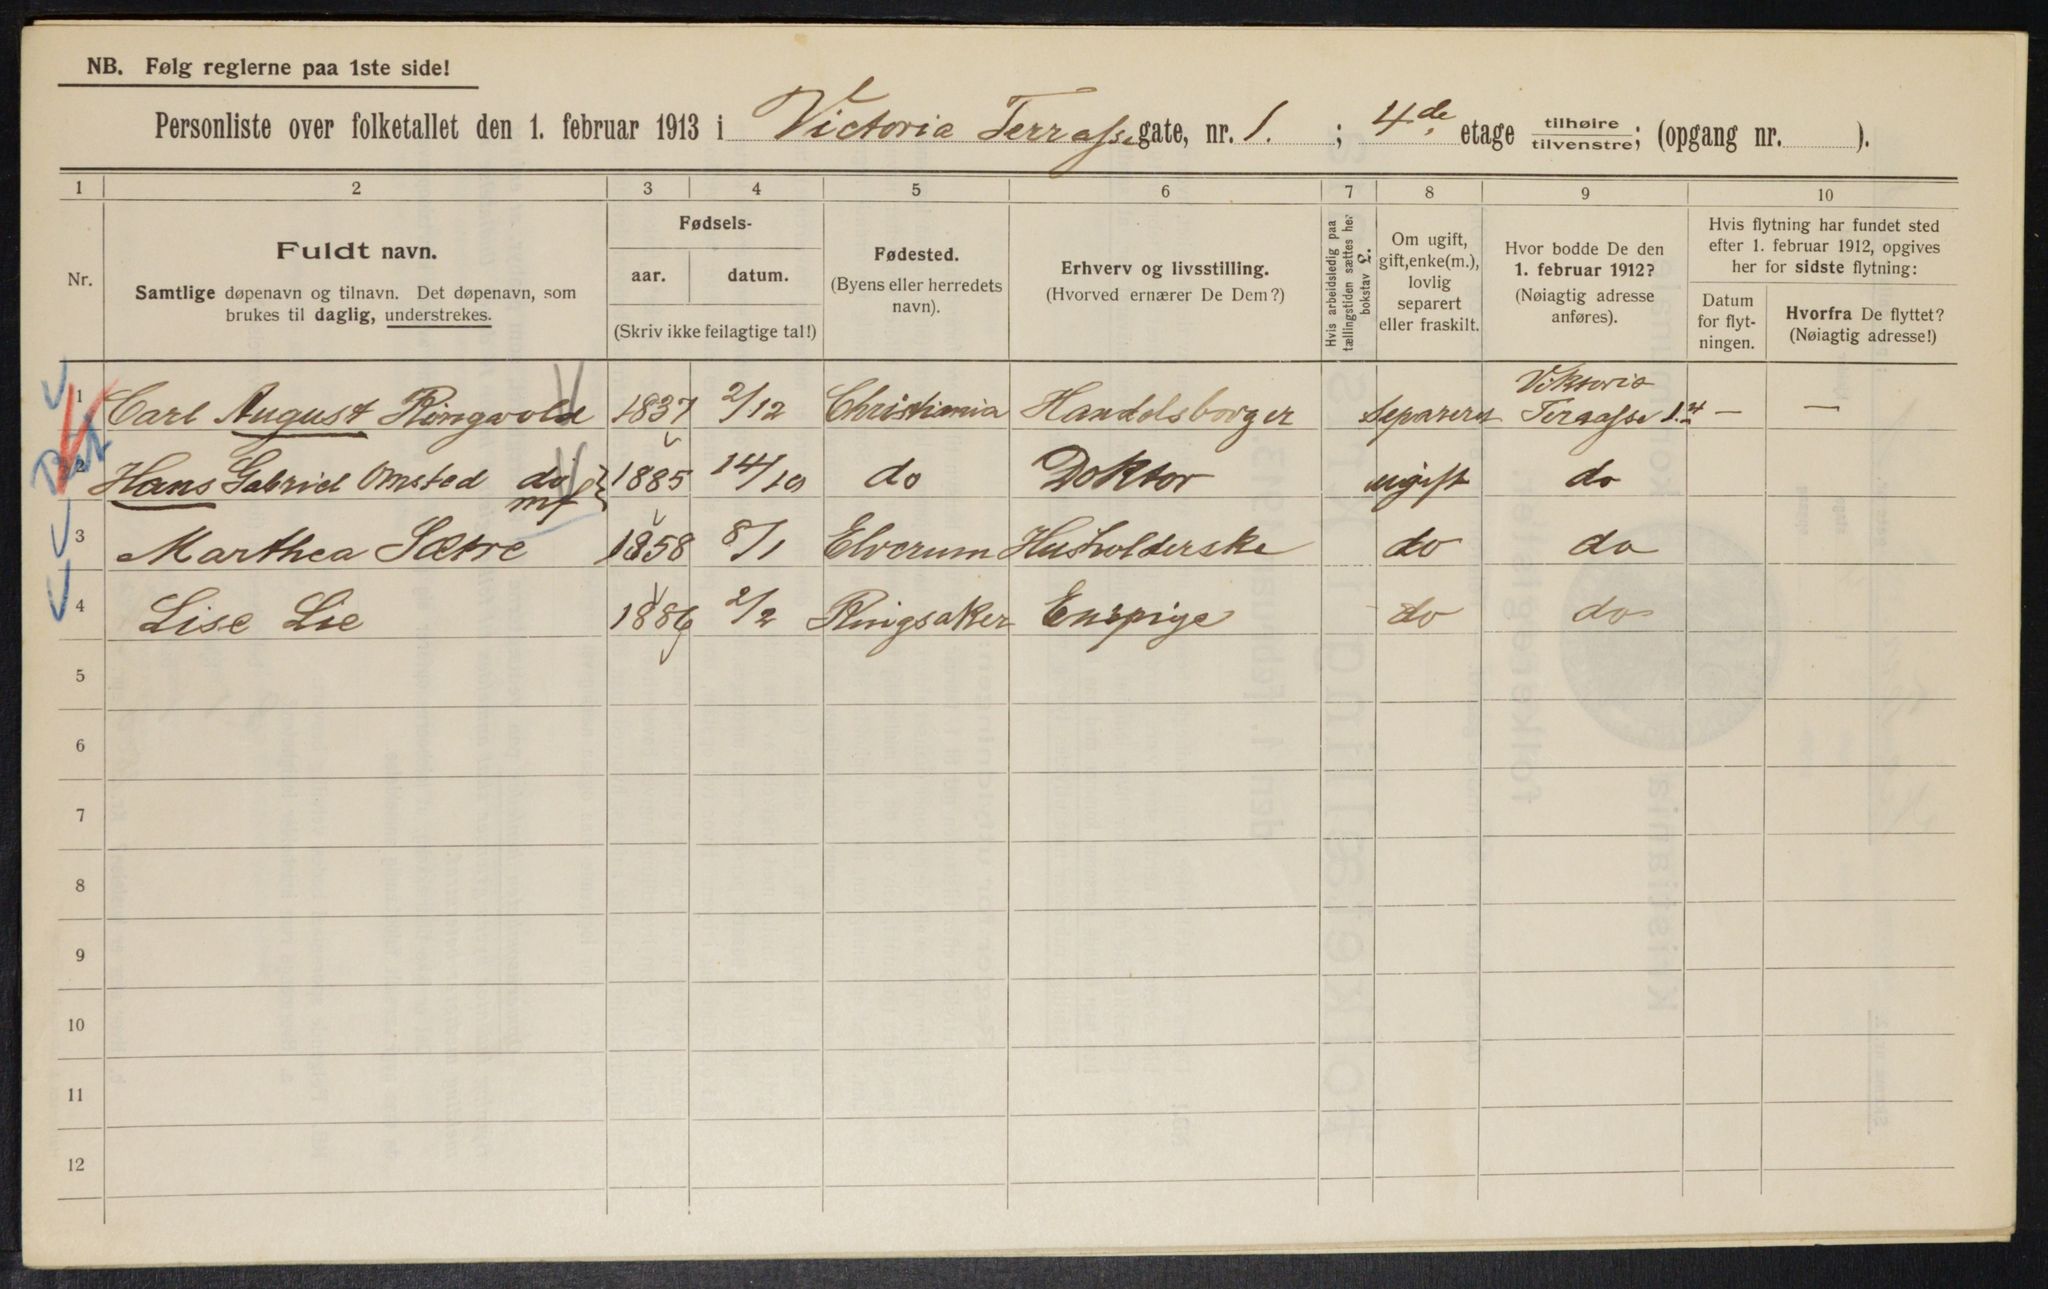 NB. Følg reglerne paa 1ste side!
Personliste over folketallet den 1. februar 1913 i Victoria Terrasse gate, nr. 1. ; 4de etage tilhøire tilvenstre; (opgang nr. ).
1 2 3 4 5 6 7 8 9 10
Nr.
Fuldt navn.
Samtlige døpenavn og tilnavn. Det døpenavn, som
brukes til daglig, understrekes.
Fødsels-
aar. datum.
(Skriv ikke feilagtige tal!)
Fødested.
(Byens eller herredets
navn).
Erhverv og livsstilling.
(Hvorved ernærer De Dem?)
Hvis arbeidsledig paa
tællingstiden sættes her
bokstav L.
Om ugift,
gift, enke(m.),
lovlig
separert
eller fraskilt.
Hvor bodde De den
1. februar 1912?
(Nøiagtig adresse
anføres).
Hvis flytning har fundet sted
efter 1. februar 1912, opgives
her for sidste flytning:
Datum
for flyt-
ningen.
Hvorfra De flyttet?
(Nøiagtig adresse!)
1 Carl August Ringvold 1837 2/12 Christiania Handelsborger Separeret Viktoria Terasse 1.4 — —
2 Hans Gabriel Omsted do 1885 14/10 do Doktor ugift do
mf
3 Marthea Sætre 1858 8/1 Elverum Husholderske do do
4 Lise Lie 1886 2/2 Ringsaker Enepige do do
5
6
7
8
9
10
11
12